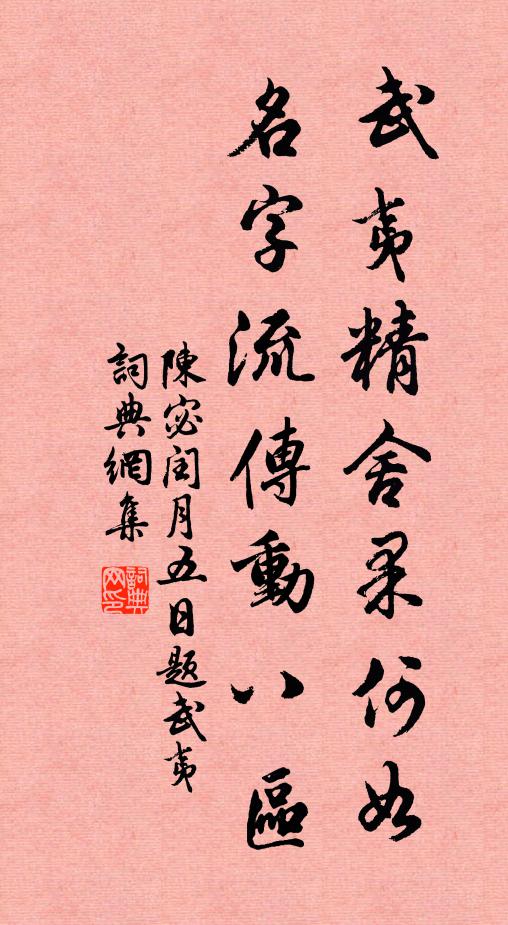 武夷精舍果何如
名字流傳動八區
陳宓閏月五日題武夷
詞典網集
詞典网印